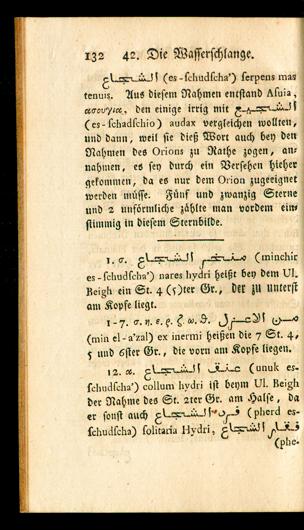 132 42. Die Wasserschlange.
الشجاع (es-schudscha') serpens mas
tenuis. Aus diesem Nahmen entstand Asuia,
ασουγια, den einige irrig mit الشجيع
(es-schadschio) audax vergleichen wollten,
und dann, weil sie dieß Wort auch bey den
Nahmen des Orions zu Rathe zogen, an-
nahmen, es sey durch ein Versehen hieher
gekommen, da es nur dem Orion zugeeignet
werden müsse. Fünf und zwanzig Sterne
und 2 unförmliche zählte man vordem ein-
stimmig in diesem Sternbilde.
1. σ. منخر الشجاع (minchir
es-schudscha') nares hydri heißt bey dem Ul.
Beigh ein St. 4 (5)ter Gr., der zu unterst
am Kopfe liegt.
1-7. σ. η. ε. ρ. ζ. ω. θ. من الاعزل
(min el-a'zal) ex inermi heißen die 7 St. 4,
5 und 6ster Gr., die vorn am Kopfe liegen.
12. α. عنق الشجاع (unuk es-
schudscha') collum hydri ist beym Ul. Beigh
der Nahme des St. 2ter Gr. am Halse, da
er sonst auch فرد الشجاع (pherd es-
schudscha) solitaria Hydri, فقار الشجاع
(phe-